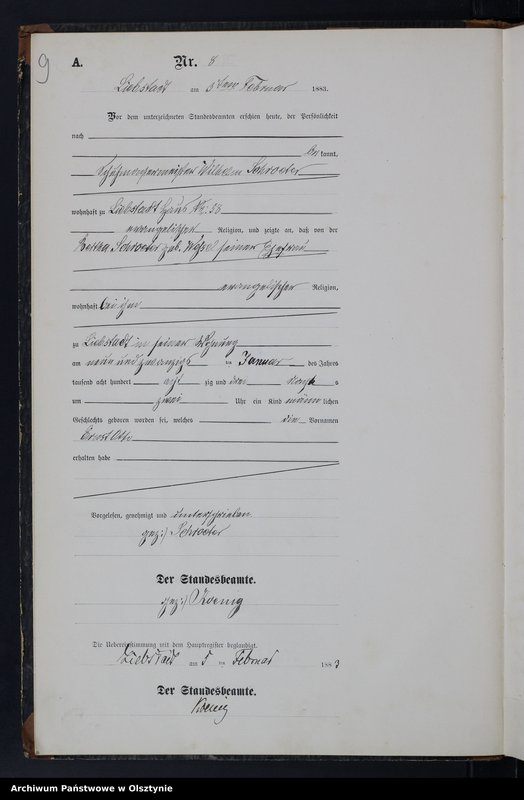 9
A. Nr. 8
Liebstadt am 5ten Februar 1883.
Vor dem unterzeichneten Standesbeamten erschien heute, der Persönlichkeit
nach
bekannt,
Wilhelm Schroeter
wohnhaft zu Liebstadt Haus Nr. 58
evangelischer Religion, und zeigte an, daß von der
Bertha Schroeter geb. seiner Ehefrau
evangelischer Religion,
wohnhaft bei ihm
zu Liebstadt in seiner Wohnung
am neun und zwanzigs ten Januar des Jahres
tausend acht hundert acht zig und drei Nach s
um zwei Uhr ein Kind männlichen
Geschlechts geboren worden sei, welches die Vornamen
Ernst Otto
erhalten habe
Vorgelesen, genehmigt und unterschrieben
gez:) Schroeter
Der Standesbeamte.
gez:) Koenig
Die Uebereinstimmung mit dem Hauptregister beglaubigt.
Liebstadt am 5 ten Februar 1883
Der Standesbeamte.
Koenig
Archiwum Państwowe w Olsztynie